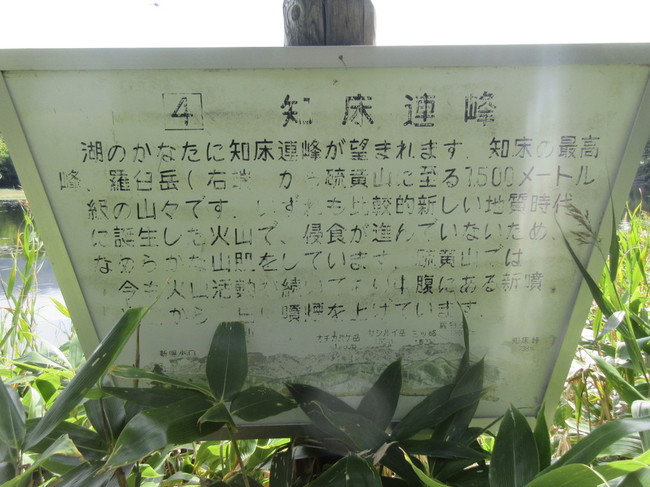 4 知床連峰
湖のかなたに知床連峰が望まれます。知床の最高
峰、羅臼岳(右端)から硫黄山に至る1,500メートル
級の山々です。いずれも比較的新しい地質時代
に誕生した火山で、侵食が進んでいないため、
なめらかな山肌をしています。硫黄山では
今も火山活動が続いており中腹にある新噴
火口から 噴煙を上げています。
オチカバケ岳 サシルイ岳 三ッ峰
新噴火口 知床峠